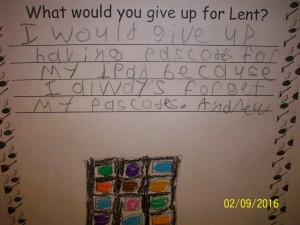 What would you give up for Lent?
I would give up
having pascodes for
my ipad because
I always forget
my pascodes. Andrew
02/09/2016